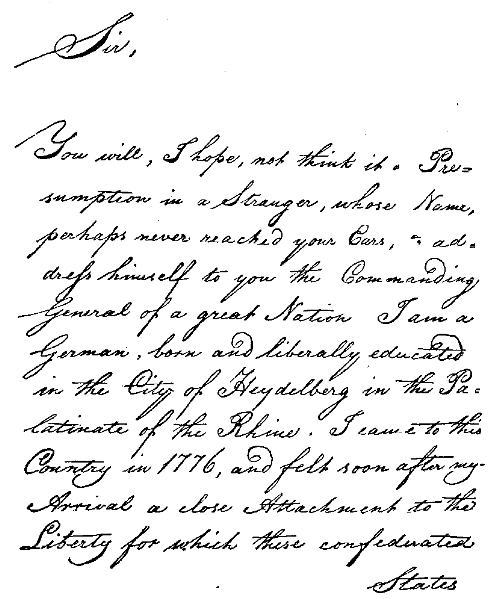 Sir,
You will, I hope, not think it a Pre=
sumption in a Stranger, whose Name,
perhaps never reached your Ears, to ad=
dress himself to you the Commanding
General of a great Nation I am a
German, born and liberally educated
in the City of Heydelberg in the Pa=
latinate of the Rhine. I came to this
Country in 1776, and felt soon after my
Arrival a close Attachment to the
Liberty for which these confederated
States